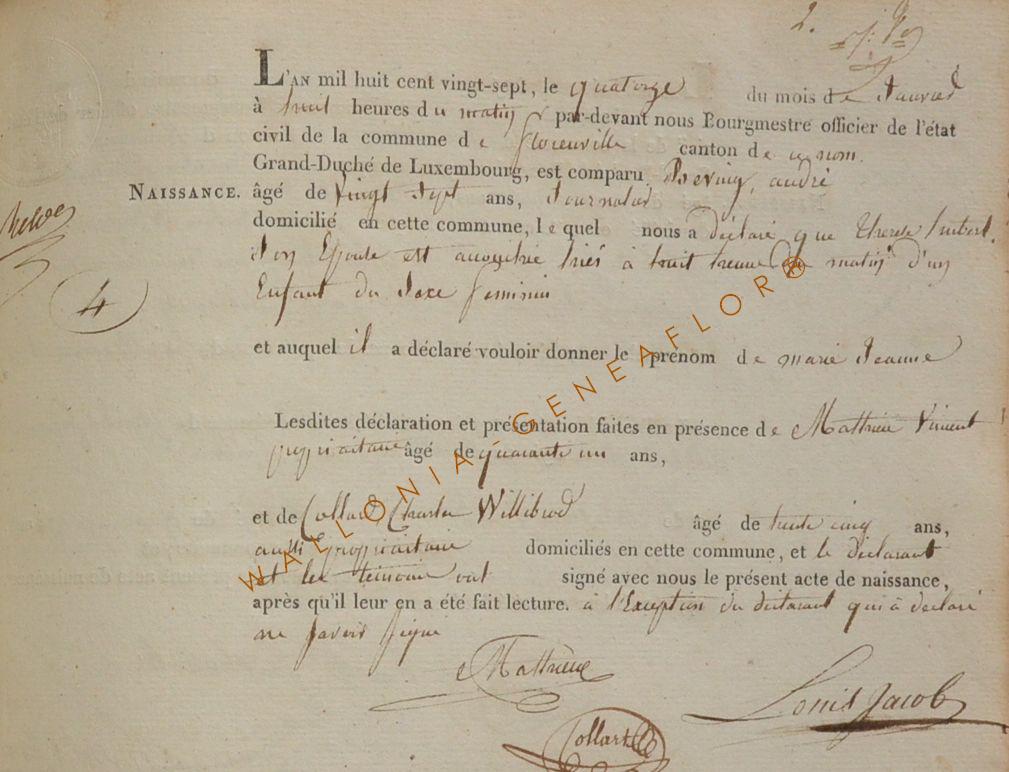 2.
L'AN mil huit cent vingt-sept, le quatorze du mois de Janvier
à huit heures du matin par-devant nous Bourgmestre officier de l'état
civil de la commune de florenville canton de ce nom.
Grand-Duché de Luxembourg, est comparu, andré
NAISSANCE. âgé de vingt sept ans, Journalier
domicilié en cette commune, lequel nous a déclaré que Therese
Son Epouse est accouchée hiér à huit heures du matin d'un
Enfant du Sexe feminin
4
et auquel il a déclaré vouloir donner le prénom de marie Jeanne
Lesdites déclaration et présentation faites en présence de Matthieu Vincent
propriaitaire âgé de quarante un ans,
et de Collard Charles Willibrod âgé de trente cinq ans,
aussi propriaitaire domiciliés en cette commune, et le déclarant
et les témoins ont signé avec nous le présent acte de naissance,
après qu'il leur en a été fait lecture. à l'Exception du déclarant qui à déclaré
ne savoir signé
Louis Jacob
Collart
WALLONIA-GENEAFLOR®